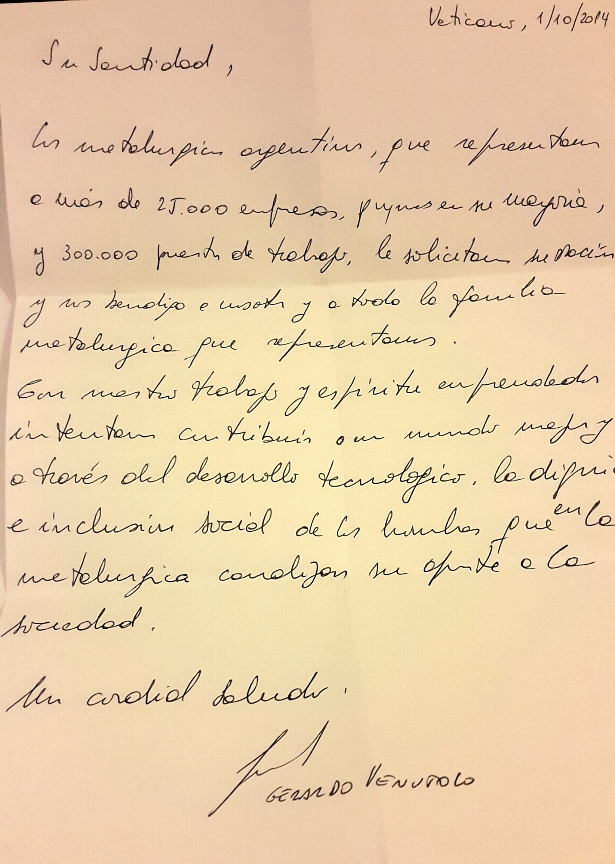 Vaticano, 1/10/2014
Su Santidad,
Los metalurgicos argentinos, que representamos
a más de 25.000 empresas, pymes en su mayoría,
y 300.000 puestos de trabajo, le solicitamos su oración
y nos bendiga a nosotros y a toda la familia
metalurgica que representamos.
Con nuestro trabajo y espíritu emprendedor
intentamos contribuir a un mundo mejor y
a través del desarrollo tecnologico, la digni
e inclusión social de los hombres que en la
metalurgica canalizan su aporte a la
sociedad.
Un cordial saludo.
GERARDO VENUTOLO